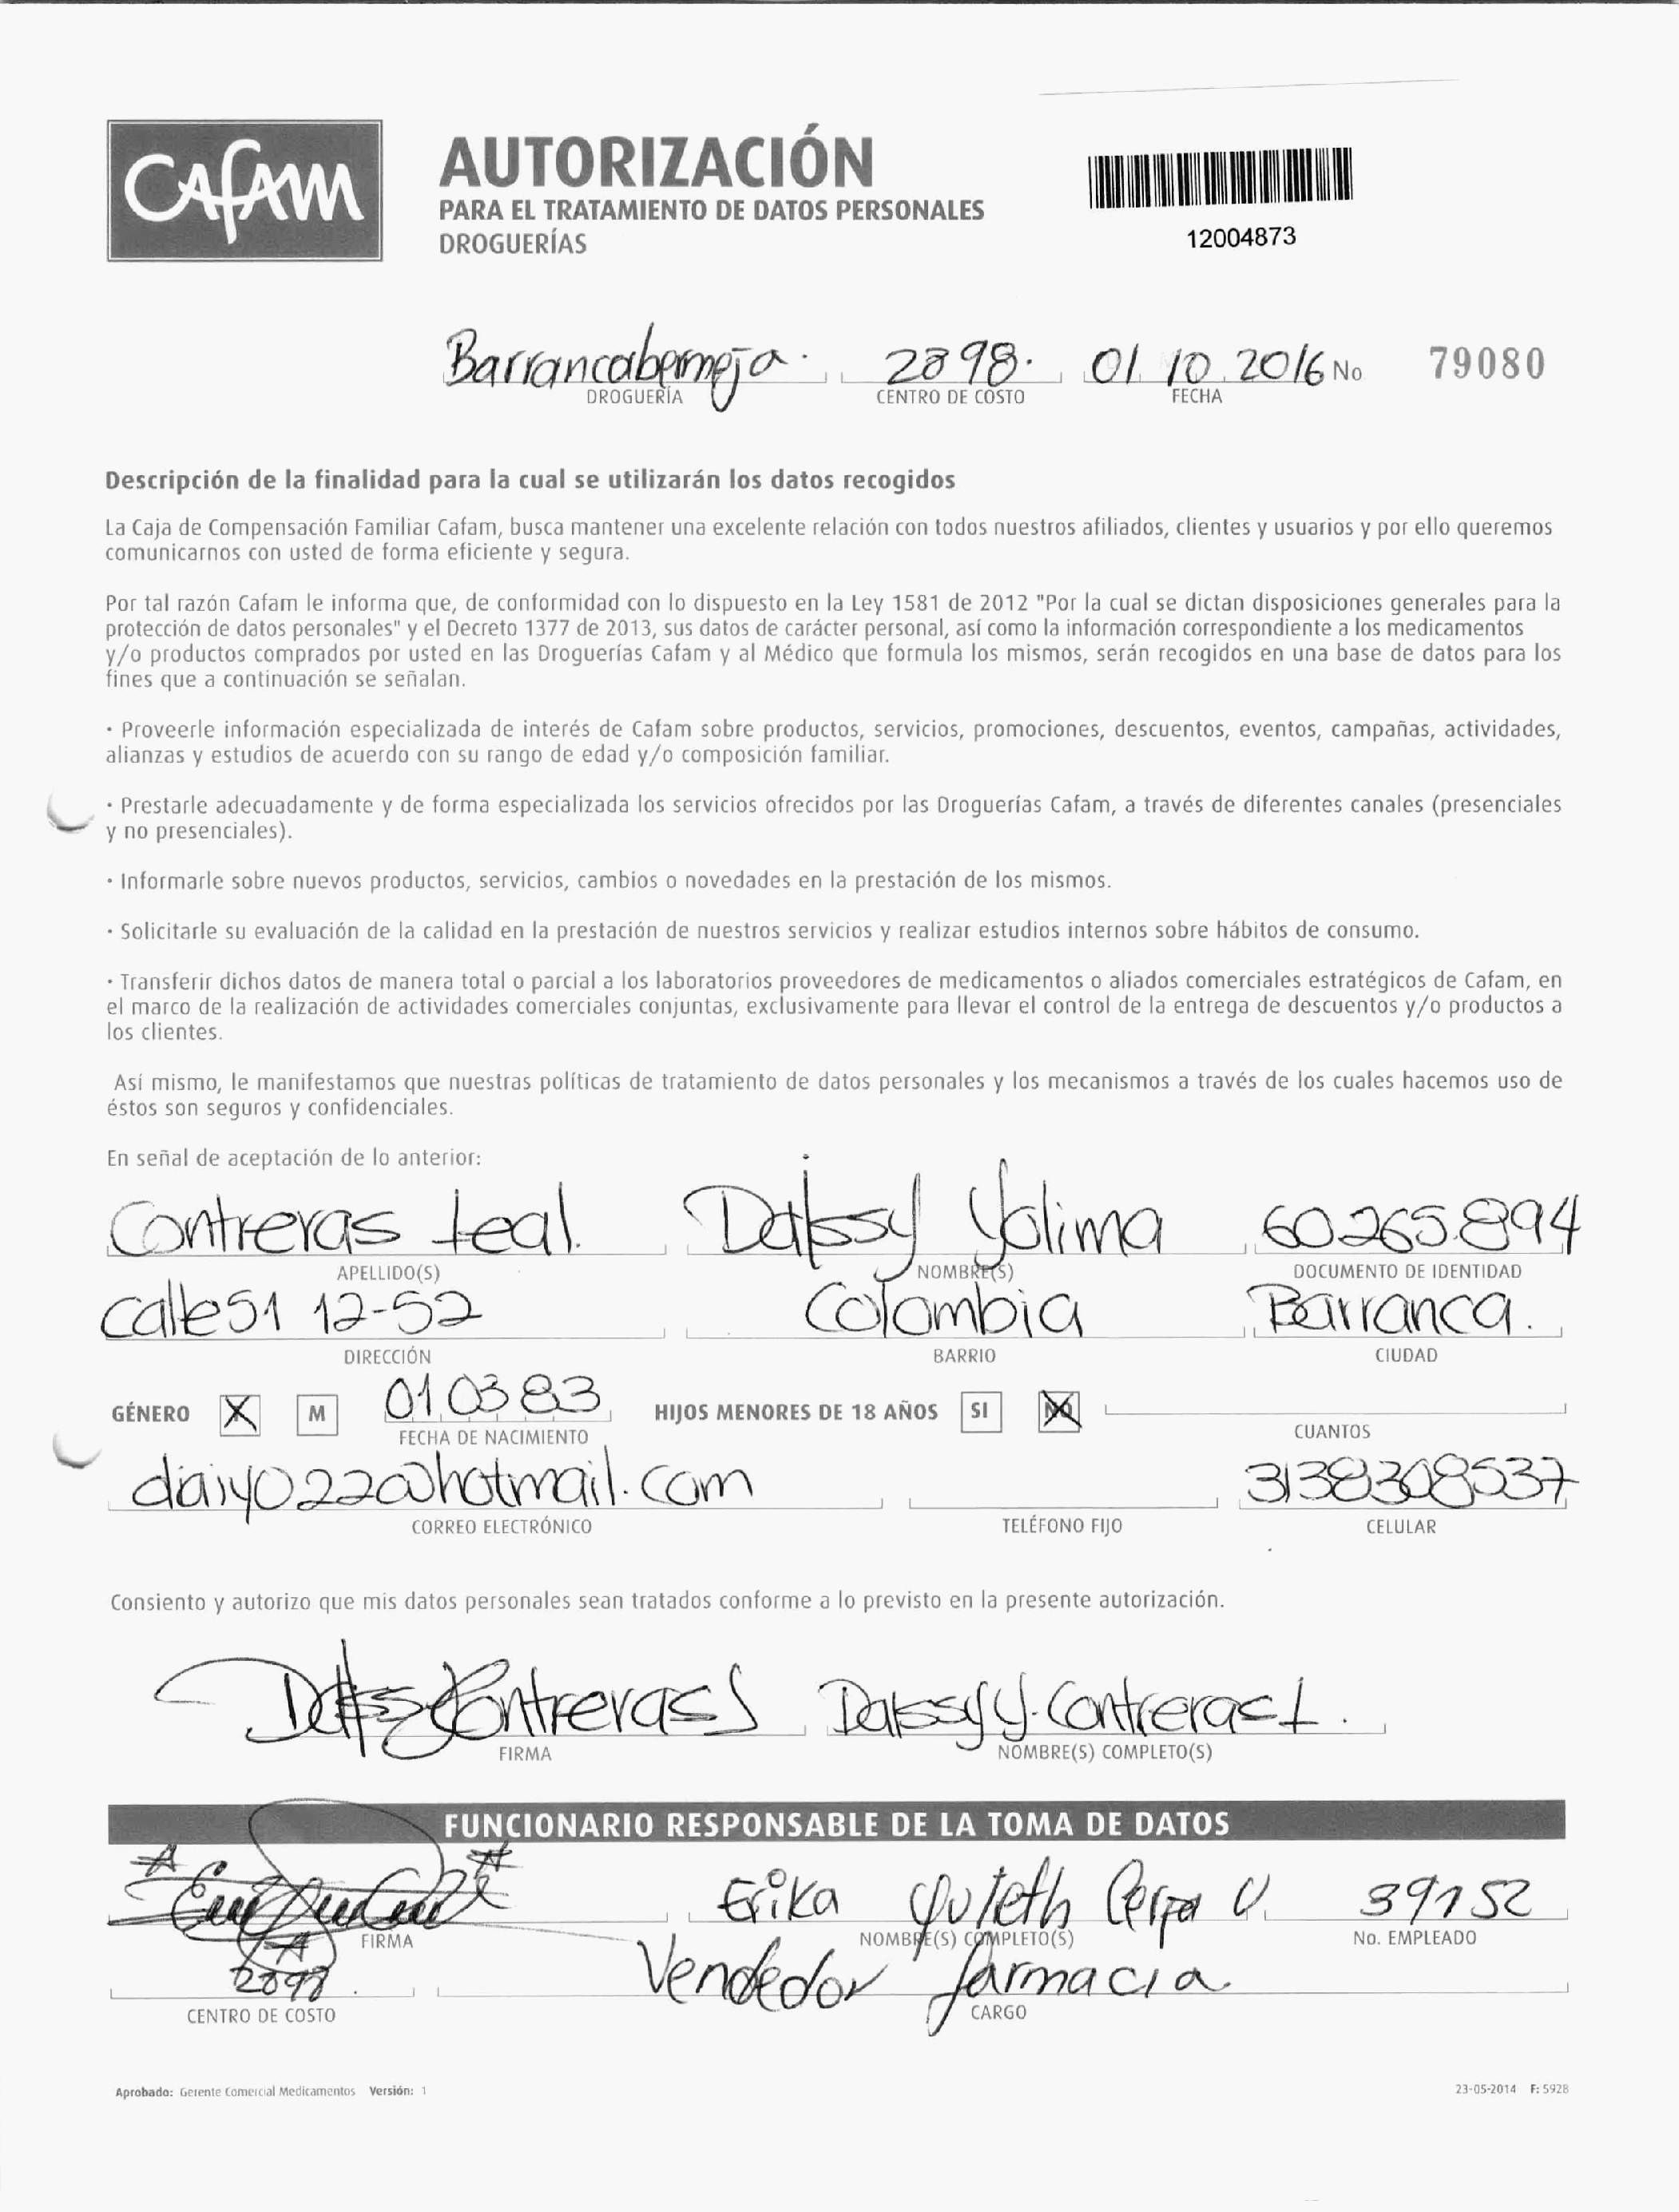 CAFAM
AUTORIZACIÓN
PARA EL TRATAMIENTO DE DATOS PERSONALES
DROGUERÍAS
12004873
Barrancabermeja. 2898. 01 10 2016 No 79080
DROGUERÍA CENTRO DE COSTO FECHA
Descripción de la finalidad para la cual se utilizarán los datos recogidos
La Caja de Compensación Familiar Cafam, busca mantener una excelente relación con todos nuestros afiliados, clientes y usuarios y por ello queremos
comunicarnos con usted de forma eficiente y segura.
Por tal razón Cafam le informa que, de conformidad con lo dispuesto en la Ley 1581 de 2012 "Por la cual se dictan disposiciones generales para la
protección de datos personales" y el Decreto 1377 de 2013, sus datos de carácter personal, así como la información correspondiente a los medicamentos
y/o productos comprados por usted en las Droguerías Cafam y al Médico que formula los mismos, serán recogidos en una base de datos para los
fines que a continuación se señalan.
· Proveerle información especializada de interés de Cafam sobre productos, servicios, promociones, descuentos, eventos, campañas, actividades,
alianzas y estudios de acuerdo con su rango de edad y/o composición familiar.
· Prestarle adecuadamente y de forma especializada los servicios ofrecidos por las Droguerías Cafam, a través de diferentes canales (presenciales
y no presenciales).
· Informarle sobre nuevos productos, servicios, cambios o novedades en la prestación de los mismos.
· Solicitarle su evaluación de la calidad en la prestación de nuestros servicios y realizar estudios internos sobre hábitos de consumo.
· Transferir dichos datos de manera total o parcial a los laboratorios proveedores de medicamentos o aliados comerciales estratégicos de Cafam, en
el marco de la realización de actividades comerciales conjuntas, exclusivamente para llevar el control de la entrega de descuentos y/o productos a
los clientes.
Así mismo, le manifestamos que nuestras políticas de tratamiento de datos personales y los mecanismos a través de los cuales hacemos uso de
éstos son seguros y confidenciales.
En señal de aceptación de lo anterior:
Contreras Leal. Daissy Yolima 60265.894
APELLIDO(S) NOMBRE(S) DOCUMENTO DE IDENTIDAD
Calle 51 12-52 Colombia Barranca.
DIRECCIÓN BARRIO CIUDAD
GÉNERO X M 01 03 83 HIJOS MENORES DE 18 AÑOS SI NO
FECHA DE NACIMIENTO CUANTOS
daiyo22@hotmail.com 3138308537
CORREO ELECTRÓNICO TELÉFONO FIJO CELULAR
Consiento y autorizo que mis datos personales sean tratados conforme a lo previsto en la presente autorización.
Contreras Daissy Y. Contreras L.
FIRMA NOMBRE(S) COMPLETO(S)
FUNCIONARIO RESPONSABLE DE LA TOMA DE DATOS
Erika 39152
FIRMA NOMBRE(S) COMPLETO(S) No. EMPLEADO
2898. Vendedor farmacia
CENTRO DE COSTO CARGO
Aprobado: Gerente Comercial Medicamentos Versión: 1 23-05-2014 F: 5928